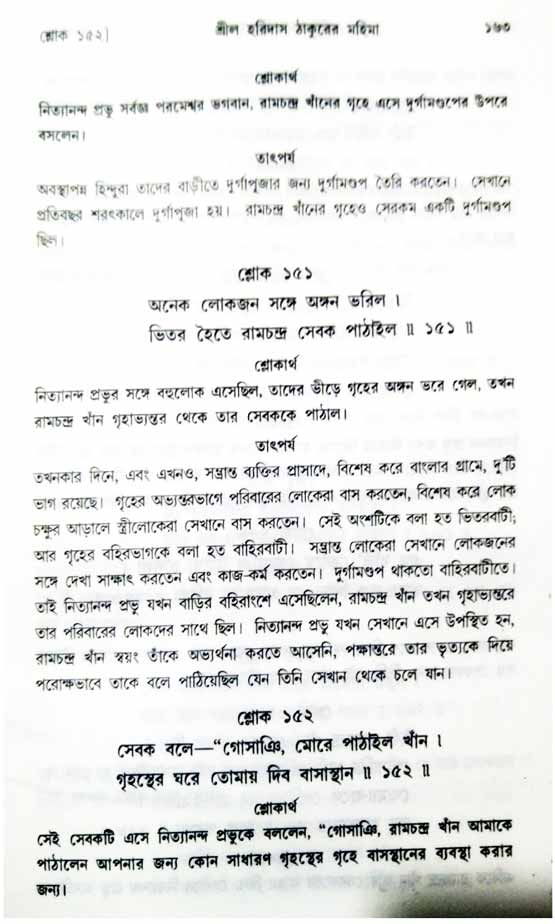 শ্লোক ১৫২] শ্রীল হরিদাস ঠাকুরের মহিমা ১৬৩
শ্লোকার্থ
নিত্যানন্দ প্রভু সর্বজ্ঞ পরমেশ্বর ভগবান, রামচন্দ্র খাঁনের গৃহে এসে দুর্গামণ্ডপের উপরে
বসলেন।
তাৎপর্য
অবস্থাপন্ন হিন্দুরা তাদের বাড়ীতে দুর্গাপূজার জন্য দুর্গামণ্ডপ তৈরি করতেন। সেখানে
প্রতিবছর শরৎকালে দুর্গাপূজা হয়। রামচন্দ্র খাঁনের গৃহেও সেরকম একটি দুর্গামণ্ডপ
ছিল।
শ্লোক ১৫১
অনেক লোকজন সঙ্গে অঙ্গন ভরিল।
ভিতর হৈতে রামচন্দ্র সেবক পাঠাইল ॥ ১৫১ ॥
শ্লোকার্থ
নিত্যানন্দ প্রভুর সঙ্গে বহুলোক এসেছিল, তাদের ভীড়ে গৃহের অঙ্গন ভরে গেল, তখন
রামচন্দ্র খাঁন গৃহাভ্যন্তর থেকে তার সেবককে পাঠাল।
তাৎপর্য
তখনকার দিনে, এবং এখনও, সম্ভ্রান্ত ব্যক্তির প্রাসাদে, বিশেষ করে বাংলার গ্রামে, দু'টি
ভাগ রয়েছে। গৃহের অভ্যন্তরভাগে পরিবারের লোকেরা বাস করতেন, বিশেষ করে লোক
চক্ষুর আড়ালে স্ত্রীলোকেরা সেখানে বাস করতেন। সেই অংশটিকে বলা হত ভিতরবাটী;
আর গৃহের বহিরভাগকে বলা হত বাহিরবাটী। সম্ভ্রান্ত লোকেরা সেখানে লোকজনের
সঙ্গে দেখা সাক্ষাৎ করতেন এবং কাজ-কর্ম করতেন। দুর্গামণ্ডপ থাকতো বাহিরবাটীতে।
তাই নিত্যানন্দ প্রভু যখন বাড়ির বহিরাংশে এসেছিলেন, রামচন্দ্র খাঁন তখন গৃহাভ্যন্তরে
তার পরিবারের লোকদের সাথে ছিল। নিত্যানন্দ প্রভু যখন সেখানে এসে উপস্থিত হন,
রামচন্দ্র খাঁন স্বয়ং তাঁকে অভ্যর্থনা করতে আসেনি, পক্ষান্তরে তার ভৃত্যকে দিয়ে
পরোক্ষভাবে তাকে বলে পাঠিয়েছিল যেন তিনি সেখান থেকে চলে যান।
শ্লোক ১৫২
সেবক বলে—“গোসাঞি, মোরে পাঠাইল খাঁন।
গৃহস্থের ঘরে তোমায় দিব বাসাস্থান ॥ ১৫২ ॥
শ্লোকার্থ
সেই সেবকটি এসে নিত্যানন্দ প্রভুকে বললেন, “গোসাঞি, রামচন্দ্র খাঁন আমাকে
পাঠালেন আপনার জন্য কোন সাধারণ গৃহস্থের গৃহে বাসস্থানের ব্যবস্থা করার
জন্য।